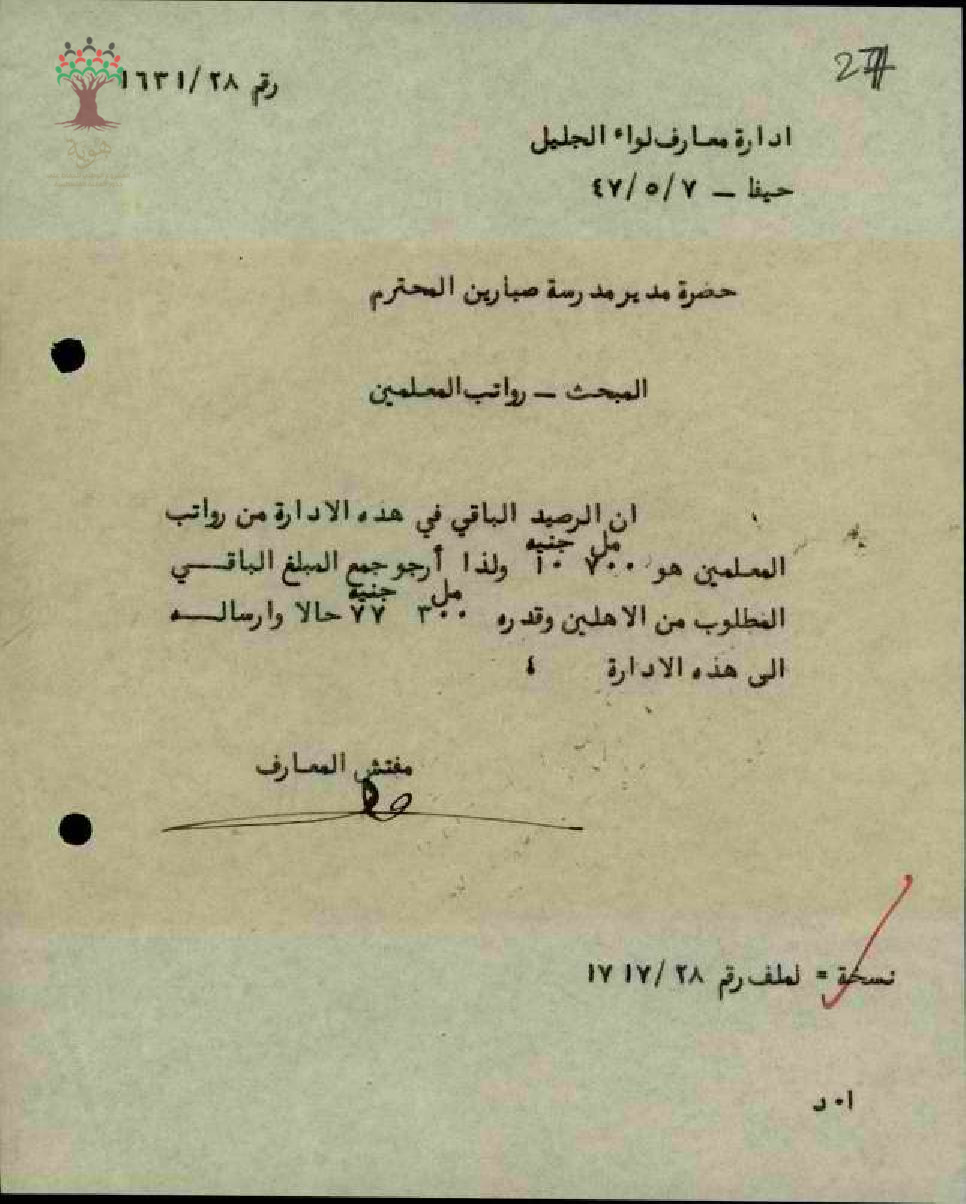 رقم ٢٨/١٦٣١
27
ادارة معارف لواء الجليل
حيفا – ٤٧/٥/٧
حضرة مدير مدرسة صبارين المحترم
المبحث – رواتب المعلمين
ان الرصيد الباقي في هذه الادارة من رواتب
مل جنيه
المعلمين هو ٧٠٠ ١٠ ولذا أرجو جمع المبلغ الباقي
مل جنيه
المطلوب من الاهلين وقدره ٣٠٠ ٧٧ حالا وارساله
الى هذه الادارة ٤
مفتش المعارف
نسخة = لملف رقم ٢٨/١٧١٧
ا٠د
هوية